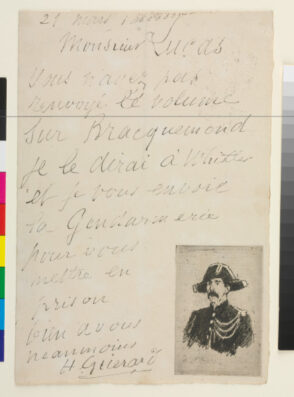 29 mars
Monsieur Lucas
Vous n'avez pas
renvoyé le volume
sur Bracquemond
je le dirai à Whistler
et je vous envoie
la Gendarmerie
pour vous
mettre en
prison
bien à vous
neanmoins